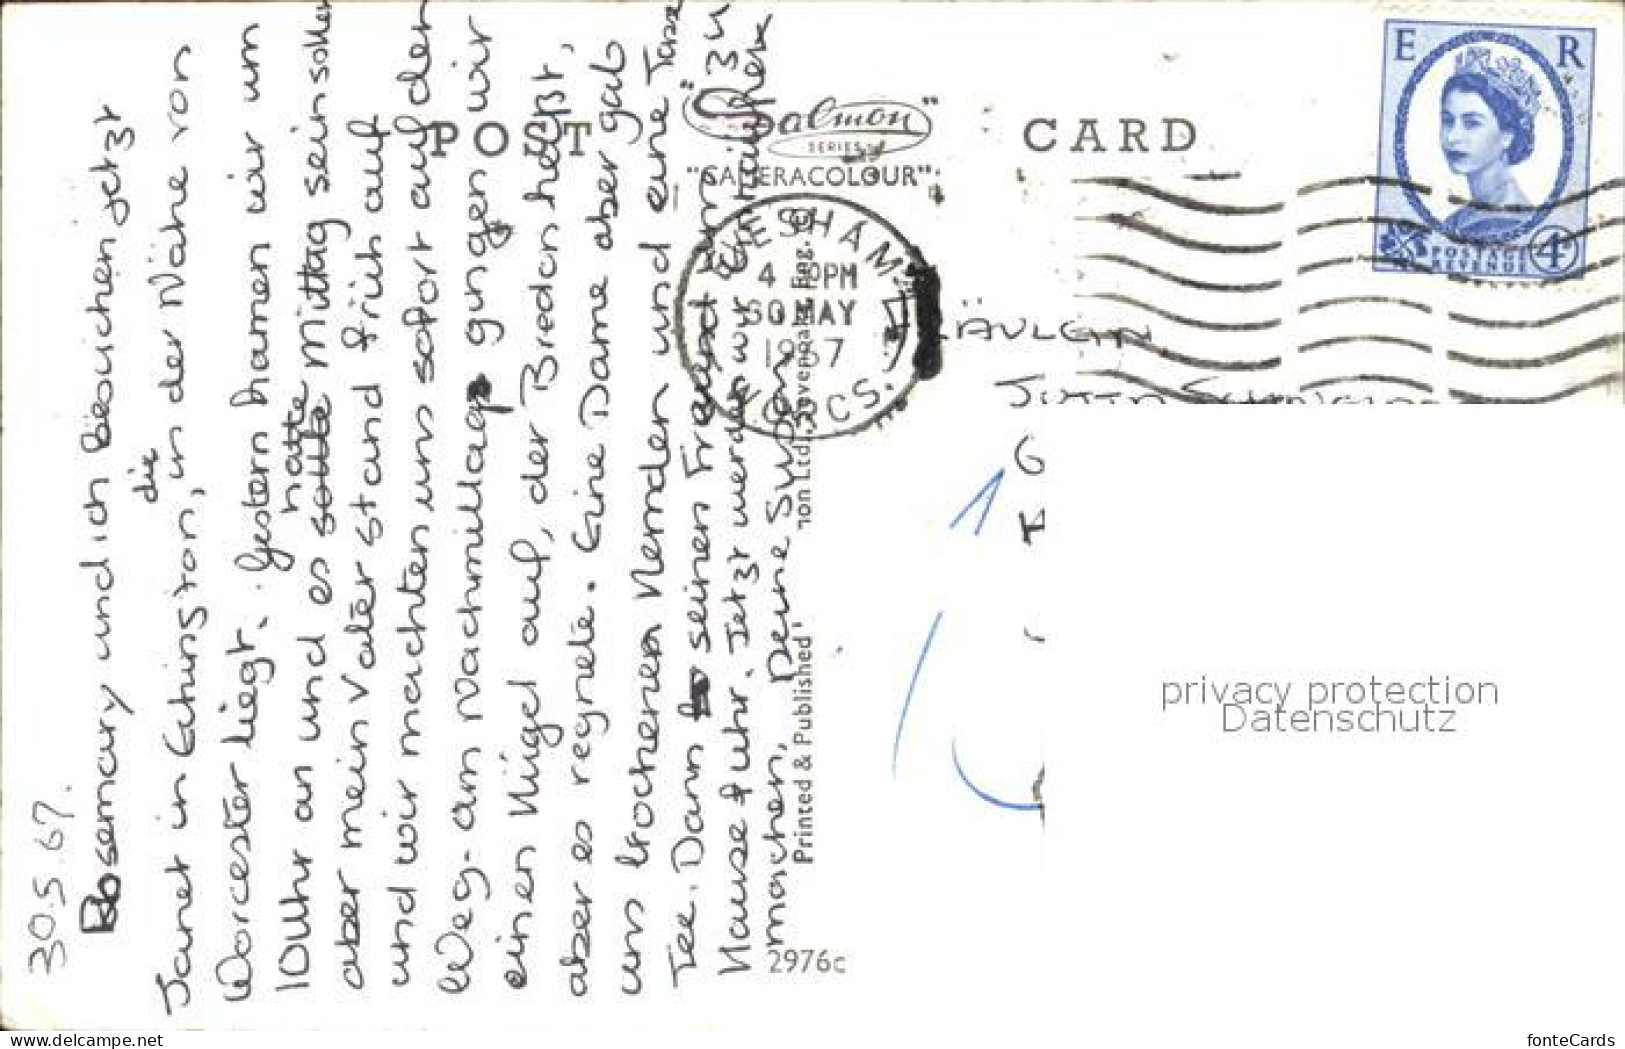 30.5.67.
Rosemary und ich besuchen jetzt
Janet in Echington, die in der Nähe von
Worcester liegt. Gestern kamen wir um
10 Uhr an und es hatte Mittag sein sollen
aber mein Vater stand früh auf
und wir machten uns sofort auf den
Weg. am Nachmittag gingen wir
einen Hügel auf, der Bredon heißt,
aber es regnete. Eine Dame aber gab
uns trockenen Hemden und eine Tasse
Tee. Dann seinen Freund zu
Hause fuhr. Jetzt werden wir
machen. Deine Susan
POST CARD
"Salmon"
SERIES
"CAMERACOLOUR"
Printed & Published
2976c
EVESHAM
4 PM
30 MAY
1967
WORCS.
E R
POSTAGE
REVENUE
4D
FRÄULEIN
JUTTA
privacy protection
Datenschutz
www.delcampe.net
Tous droits réservés
fonteCards